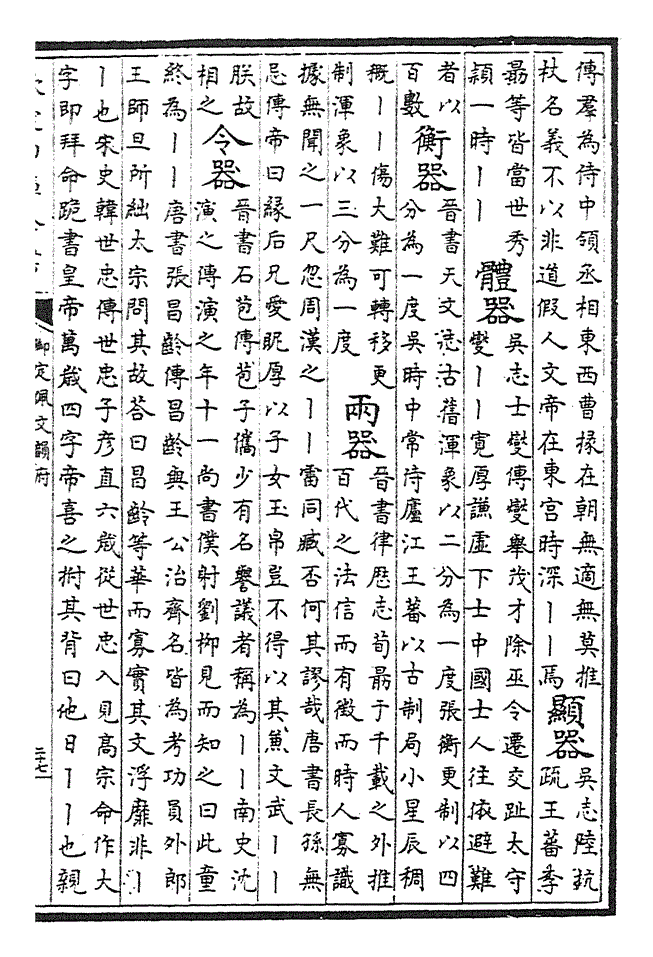 傳羣為侍中領丞相東西曹掾在朝無適無莫推
杖名義不以非道假人文帝在東宮時深丨丨焉
顯器
吳志陸抗
疏王蕃李
勗等皆當世秀
頴一時丨丨
體器
吳志士燮傳燮舉茂才除巫令遷交趾太守
燮丨丨寛厚謙虛下士中國士人往依避難
者以
百數
衡器
晉書天文志古舊渾象以二分為一度張衡更制以四
分為一度吳時中常侍廬江王蕃以古制局小星辰稠
概丨丨傷大難可轉移更
制渾象以三分為一度
兩器
晉書律歷志荀勗于千載之外推
百代之法信而有徵而時人寡識
據無聞之一尺忽周漢之丨丨雷同臧否何其謬哉唐書長孫無
忌傳帝曰緣后兄愛昵厚以子女玉帛豈不得以其兼文武丨丨
朕故
相之
令器
晉書石苞傳苞子儁少有名譽議者稱為丨丨南史沈
演之傳演之年十一尚書僕射劉柳見而知之曰此童
終為丨丨唐書張昌齡傳昌齡與王公治齊名皆為考功員外郎
王師旦所絀太宗問其故答曰昌齡等華而寡實其文浮靡非丨
丨也宋史韓世忠傳世忠子彥直六歲從世忠入見高宗命作大
字即拜命跪書皇帝萬歲四字帝喜之拊其背曰他日丨丨也親
御定佩文韻府
二十七